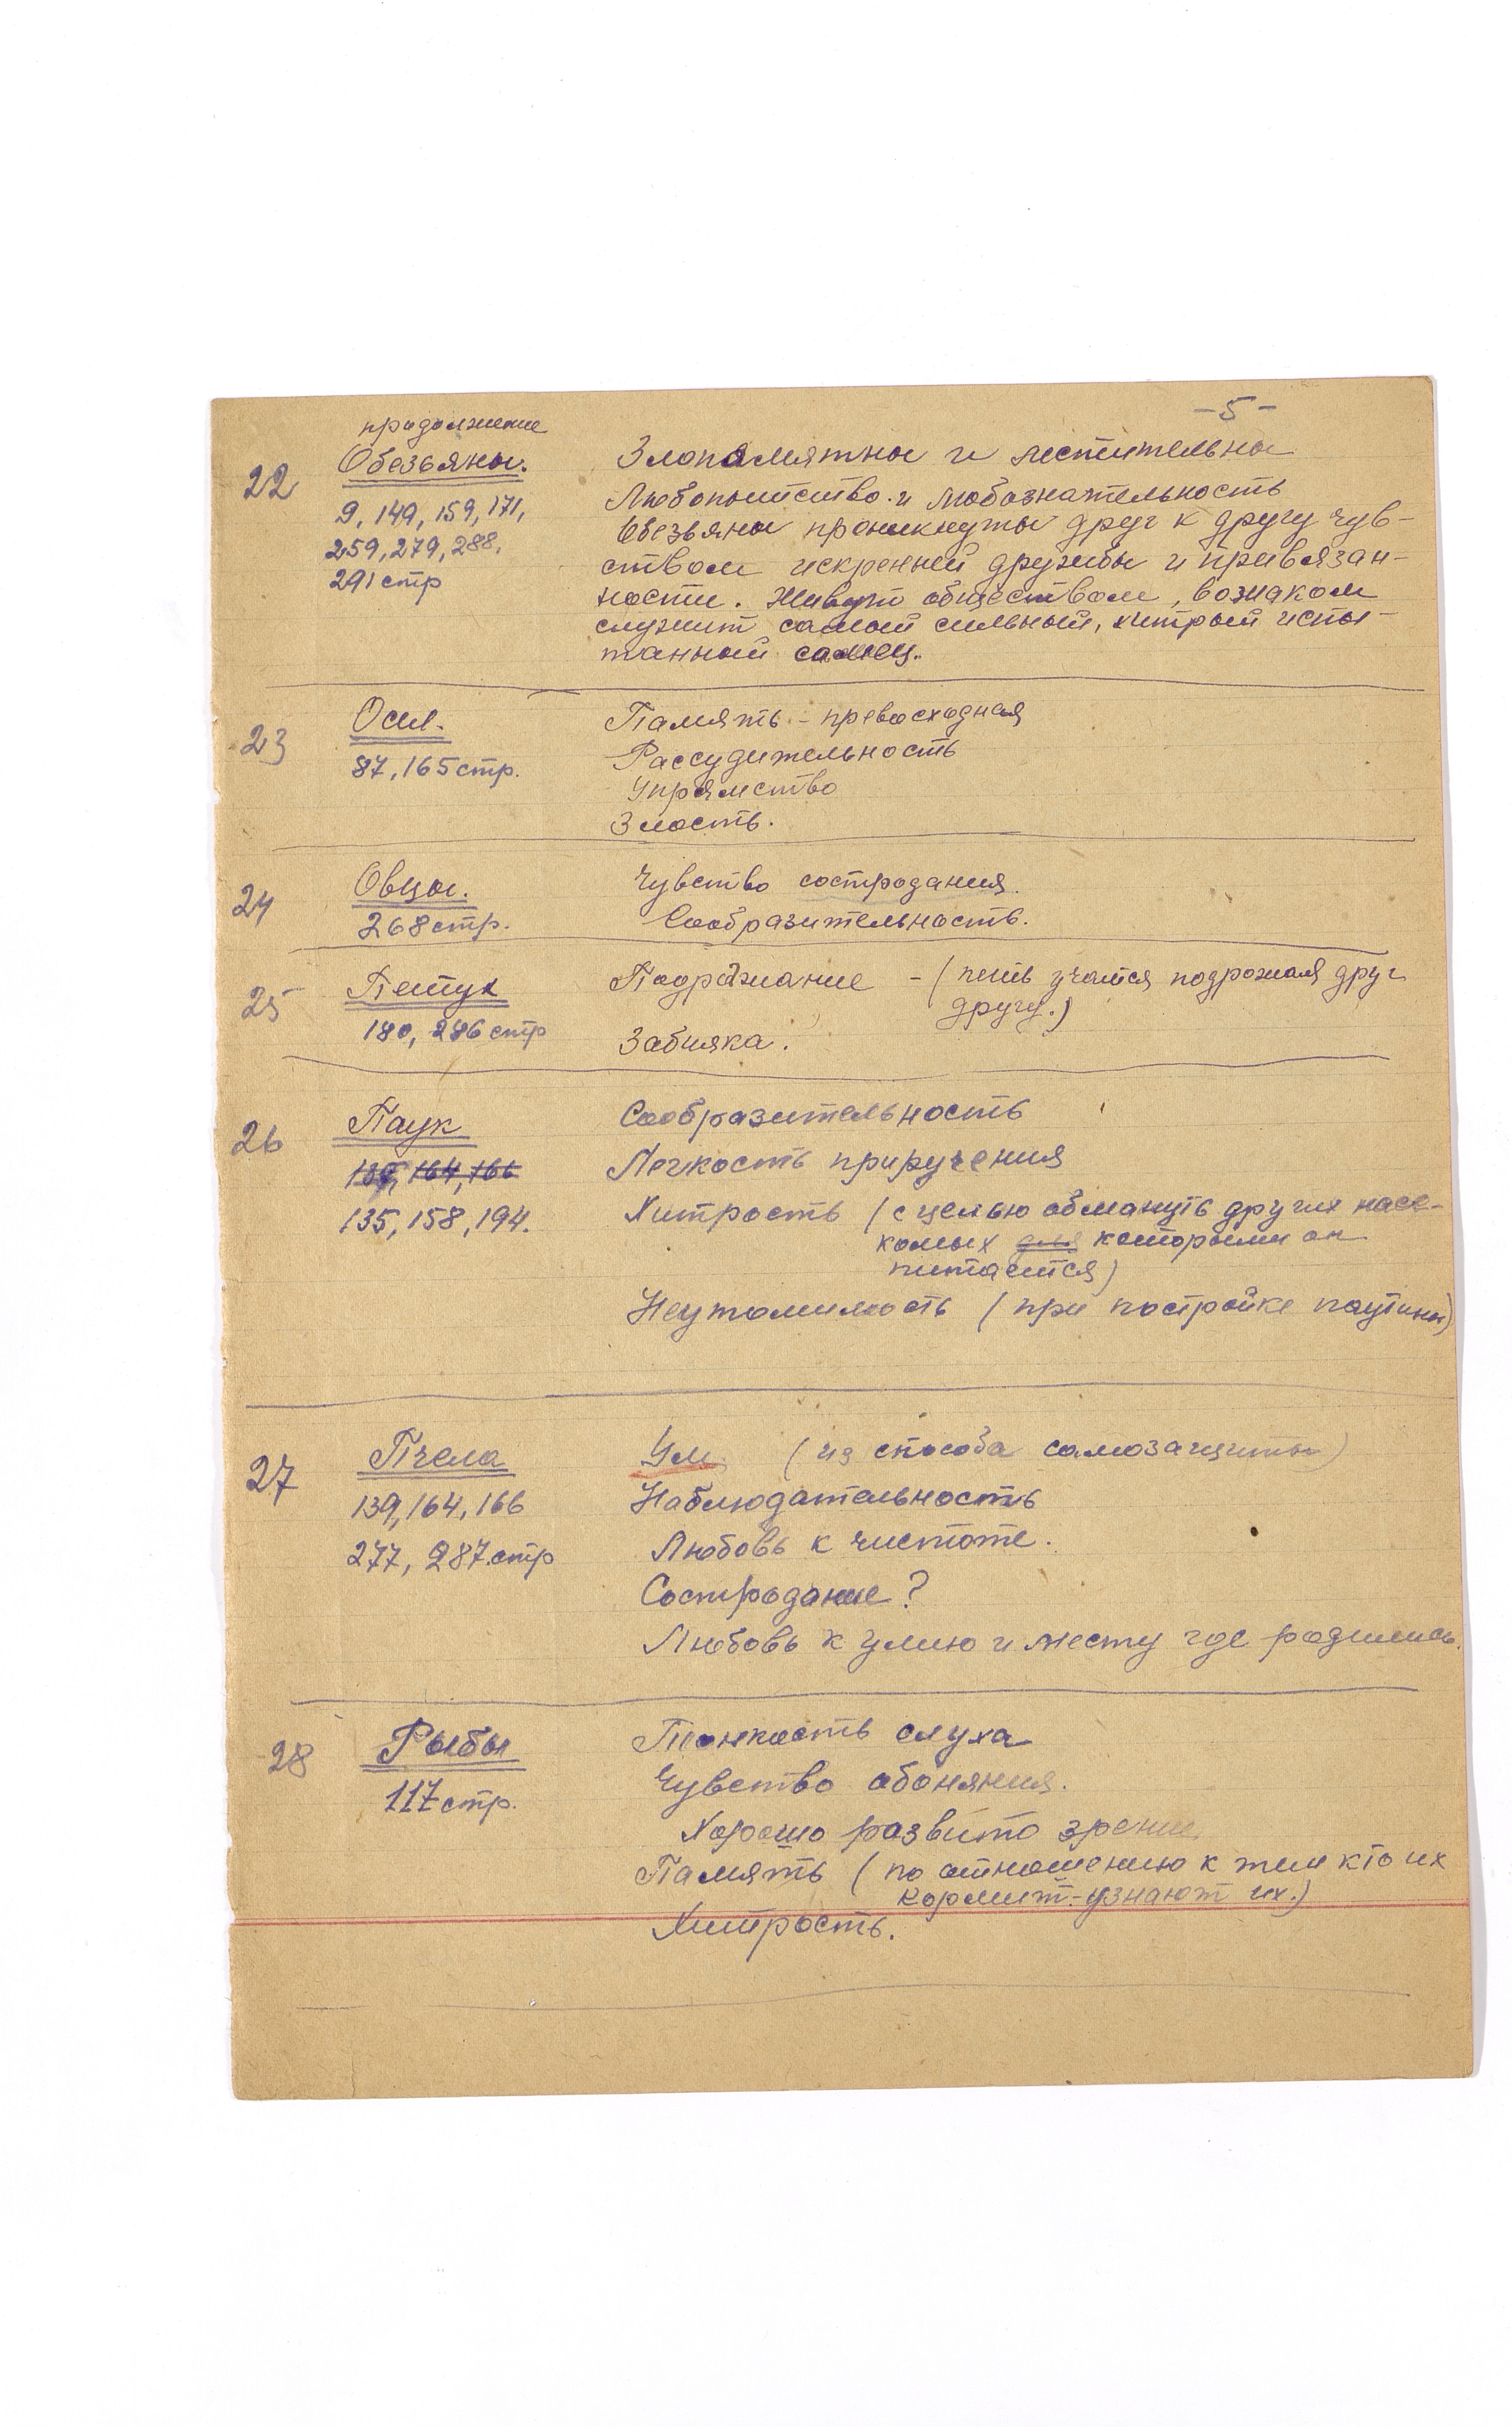 -5-
продолжение
22 Обезьяны. Злопамятны и мстительны
9, 149, 159, 171, Любопытство и любознательность
259, 279, 288, Обезьяны проникнуты друг к другу чув-
291 стр ством искренней дружбы и привязан-
ности. Живут обществом, вожаком
служит самый сильный, хитрый испы-
танный самец.
23 Осел. Память - превосходная
87, 165 стр. Рассудительность
Упрямство
Злость.
24 Овцы. Чувство сострадания.
268 стр. Сообразительность.
25 Петух Подражание - (петь учатся подрожая друг
другу.)
180, 286 стр Забияка.
26 Паук Сообразительность
139, 164, 166 Легкость приручения
135, 158, 194. Хитрость (с целью обмануть других насе-
комых для которыми он
питается)
Неутомимость (при постройке паутины)
27 Пчела Ум (из способа самозащиты)
139, 164, 166 Наблюдательность
277, 287 стр Любовь к чистоте.
Сострадание?
Любовь к улию и месту где родились.
28 Рыбы Тонкость слуха
117 стр. Чувство обоняния.
Хорошо развито зрение
Память (по отношению к тем кто их
кормит - узнают их.)
Хитрость.